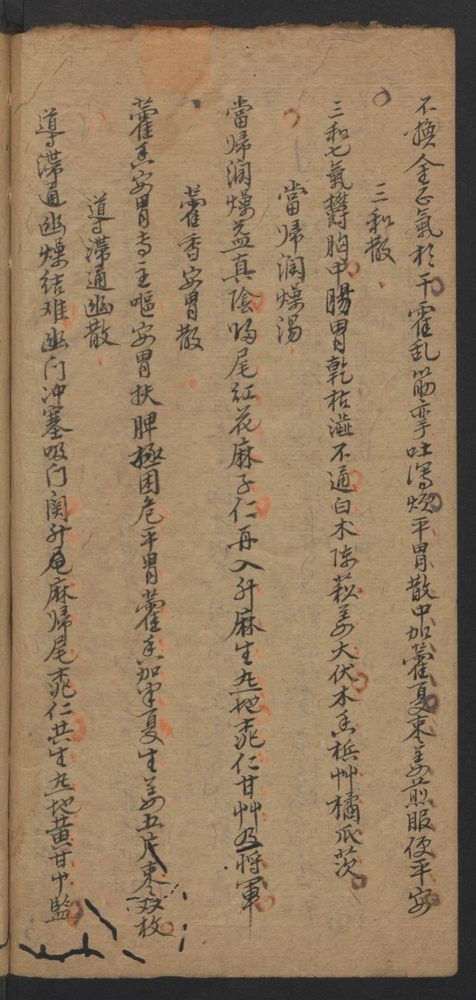 不換金正氣於干霍乱筋孪吐瀉煩平胃散中加藿夏棗姜煎服便平安
三和散
三和七氣欝胸中腸胃乾枯澁不通白木陈菘姜大伏木香梹艸橘瓜茨
當歸潤燥湯
當歸潤燥益真陰归尾紅花麻子仁再入升麻生苄地桃仁甘艸及將軍
藿香安胃散
藿香安胃專主嘔安胃扶脾極困危平胃藿香加半夏生姜五片棗双枚
導滞通幽散
導滞通幽燥结难幽门冲塞吸门関升麻歸尾桃仁共生地黄甘中監